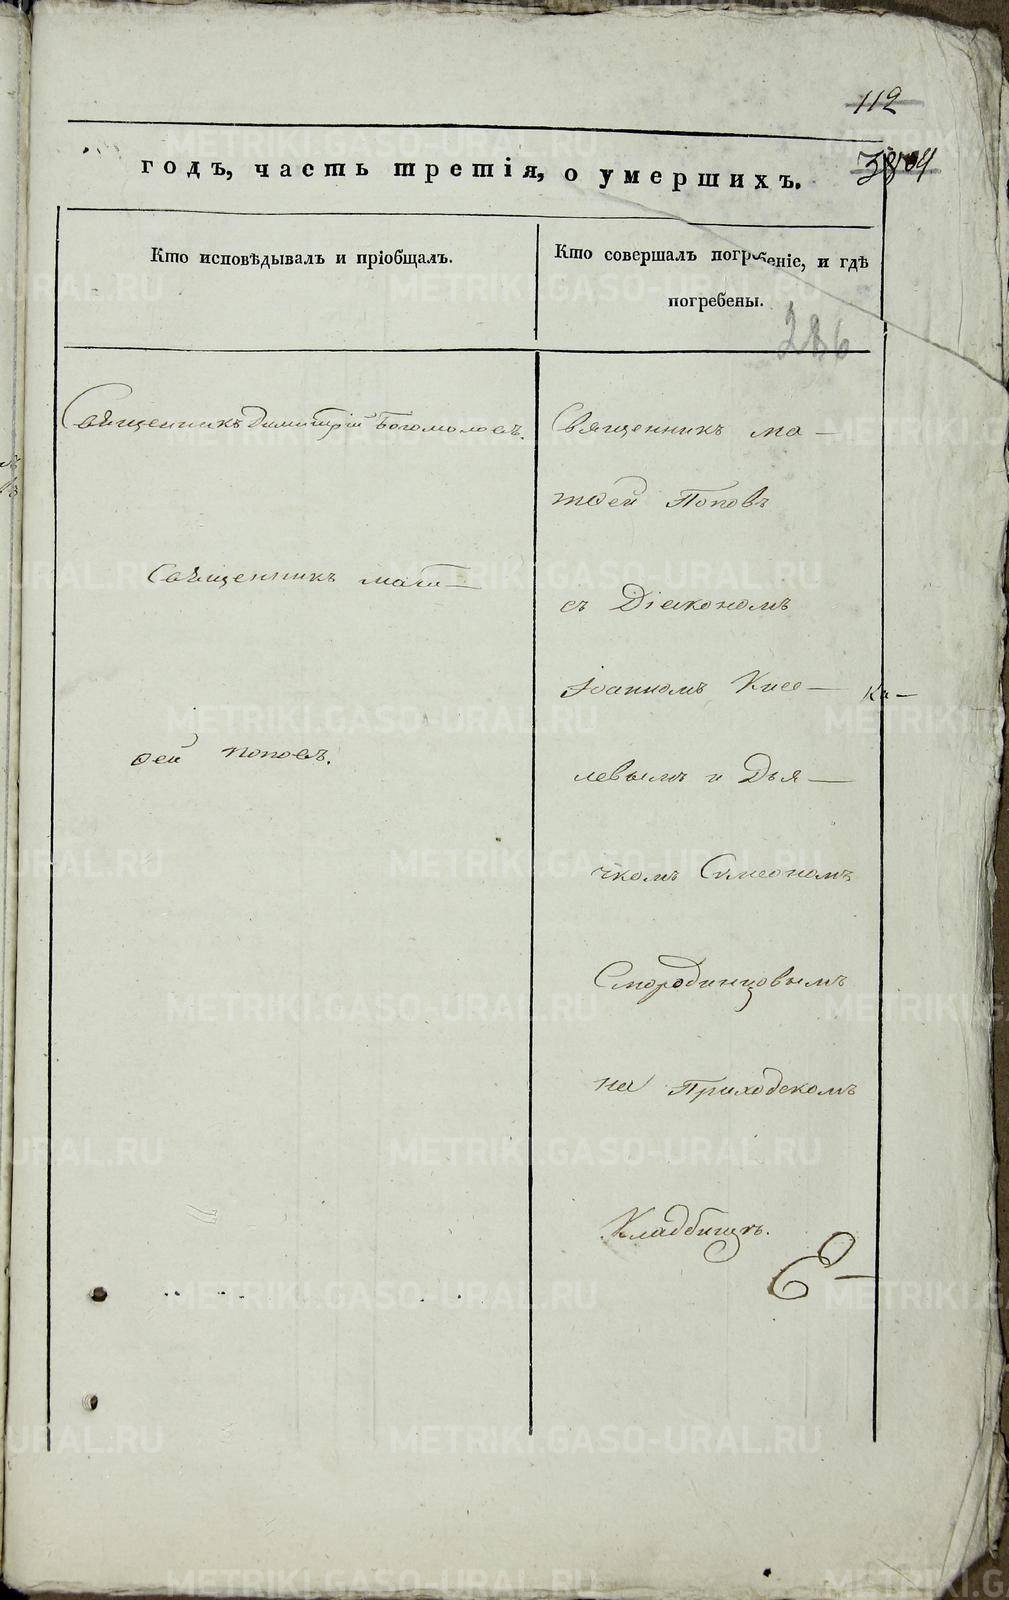 112
годъ, часть третія, о умершихъ.
Кто исповѣдывалъ и пріобщалъ.
Кто совершалъ погребеніе, и гдѣ
погребены.
286
Священникъ Димитрій Богомоловъ.
Священникъ мат—
ѳей Поповъ.
Священникъ ма—
тѳей Поповъ
съ Діакономъ
Іоанномъ Кисе—
левымъ и Дья—
чкомъ Симеономъ
Смородинцовымъ
на Приходскомъ
Кладбищѣ.
METRIKI.GASO-URAL.RU